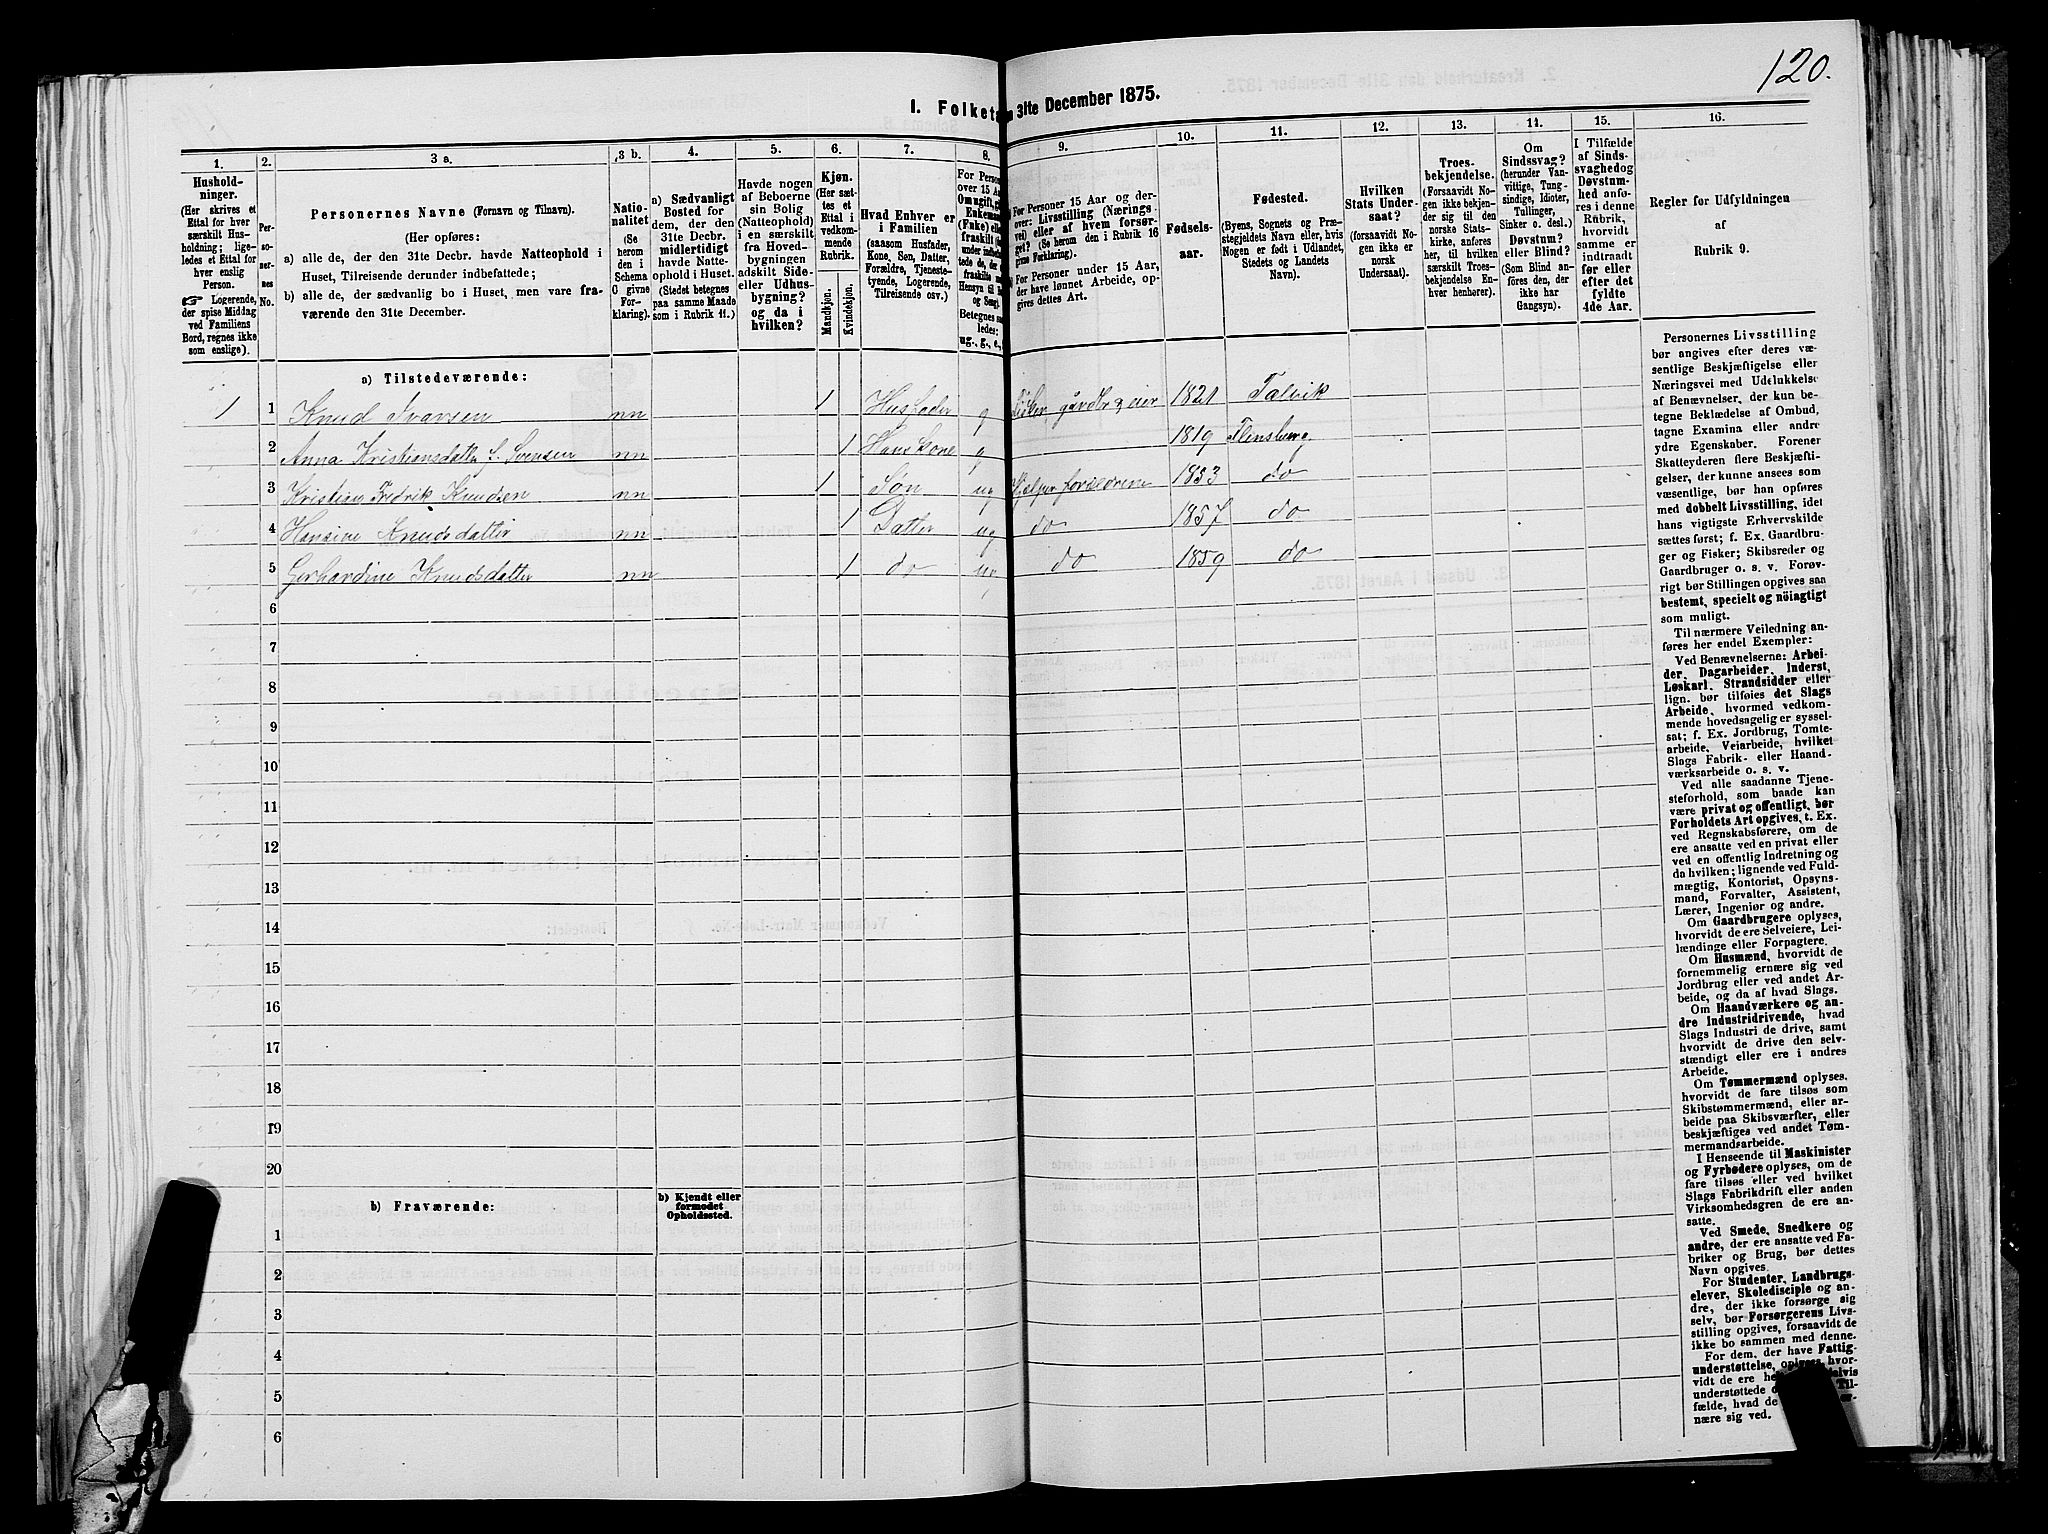 120.
I. Folketa n 31te December 1875.
1. 2. 3 a. 3 b. 4. 5. 6. 7. 8. 9. 10. 11. 12. 13. 14. 15. 16.
Hushold-
ninger.
(Her skrives et
Ettal for hver
særskilt Hus-
holdning; lige-
ledes et Ettal for
hver enslig
Person.
☞ Logerende,
der spise Middag
ved Familiens
Bord, regnes ikke
som enslige).
Per-
so-
ner-
nes
No.
Personernes Navne (Fornavn og Tilnavn).
(Her opføres:
a) alle de, der den 31te Decbr. havde Natteophold i
Huset, Tilreisende derunder indbefattede;
b) alle de, der sædvanlig bo i Huset, men vare fra-
værende den 31te December.
Natio-
nalitet
(Se
herom
den i
Schema
C givne
For-
klaring).
a) Sædvanligt
Bosted for
dem, der den
31te Decbr.
midlertidigt
havde Natte-
ophold i Huset.
(Stedet betegnes
paa samme Maade
som i Rubrik 11.)
Havde nogen
af Beboerne
sin Bolig
(Natteophold)
i en særskilt
fra Hoved-
bygningen
adskilt Side-
eller Udhus-
bygning?
og da i
hvilken?
Kjøn.
(Her sæt-
tes et
Ettal i
vedkom-
mende
Rubrik.
Mandkjøn.
Kvindekjøn.
Hvad Enhver er
i Familien
(saasom Husfader,
Kone, Søn, Datter,
Forældre, Tjeneste-
tyende, Logerende,
Tilreisende osv.)
For Person
over 15 Aa
Om ugift, gi
Enkeman
(Enke) elle
fraskilt (
under indbefa
tede de, der
fraskilte
Hensyn til B
og Seng).
Betegnes saa
ledes:
ug., g., e.,
For Personer 15 Aar og der-
over: Livsstilling (Nærings-
vei) eller af hvem forsør-
get? (Se herom den i Rubrik 16
givne Forklaring).
For Personer under 15 Aar,
der have lønnet Arbeide, op-
gives dettes Art.
Fødsels-
aar.
Fødested.
(Byens, Sognets og Præ-
stegjeldets Navn eller, hvis
Nogen er født i Udlandet,
Stedets og Landets
Navn).
Hvilken
Stats Under-
saat?
(forsaavidt No-
gen ikke er
norsk
Undersaat).
Troes-
bekjendelse.
(Forsaavidt No-
gen ikke bekjen-
der sig til den
norske Stats-
kirke, anføres
her, til hvilken
særskilt Troes-
bekjendelse En-
hver henhører).
Om
Sindssvag?
(herunder Van-
vittige, Tung-
sindige, Idioter,
Tullinger,
Sinker o. desl.)
Døvstum?
eller Blind?
(Som Blind an-
føres den, der
ikke har
Gangsyn).
I Tilfælde
af Sinds-
svaghed og
Døvstum-
hed anfø-
res i denne
Rubrik,
hvorvidt
samme er
indtraadt
før eller
efter det
fyldte
4de Aar.
Regler for Udfyldningen
af
Rubrik 9.
a) Tilstedeværende:
1 1 Knud Ivarsen nn 1 Husfader g gårdbr. eier 1821 Talvik
2 Anna Kristiansdatter f. Svensen nn 1 Hans kone g 1819 Flensburg
3 Kristian Fredrik Knudsen nn 1 Søn ug hjelper forældrene 1853 do
4 Hansine Knudsdatter nn 1 Datter ug do 1857 do
5 Gerhardine Knudsdatter nn 1 do ug do 1859 do
6
7
8
9
10
11
12
13
14
15
16
17
18
19
20
b) Fraværende:
b) Kjendt eller
formodet
Opholdssted.
1
2
3
4
5
6
Personernes Livsstilling
bør angives efter deres væ-
sentlige Beskjæftigelse eller
Næringsvei med Udelukkelse
af Benævnelser, der kun be-
tegne Beklædelse af Ombud,
tagne Examina eller andre
ydre Egenskaber. Forener
Skatteyderen flere Beskjæfti-
gelser, der kunne ansees som
væsentlige, bør han opføres
med dobbelt Livsstilling, idet
hans vigtigste Erhvervskilde
sættes først; f. Ex. Gaardbru-
ger og Fisker; Skibsreder og
Gaardbruger o. s. v. Forøv-
rigt bør Stillingen opgives saa
bestemt, specielt og nöiagtigt
som muligt.
Til nærmere Veiledning an-
føres her endel Exempler:
Ved Benævnelserne: Arbei-
der, Dagarbeider, Inderst,
Løskarl, Strandsidder eller
lign. bør tilføies det Slags
Arbeide, hvormed vedkom-
mende hovedsagelig er syssel-
sat; f. Ex. Jordbrug, Tomte-
arbeide, Veiarbeide, hvilket
Slags Fabrik- eller Haand-
værksarbeide o. s. v.
Ved alle saadanne Tjene-
steforhold, som baade kan
være privat og offentligt, bør
Forholdets Art opgives, t. Ex.
ved Regnskabsførere, om de
ere ansatte ved en privat eller
ved en offentlig Indretning og
da hvilken; lignende ved Fuld-
mægtig, Kontorist, Opsyns-
mand, Forvalter, Assistent,
Lærer, Ingeniør og andre.
Om Gaardbrugere oplyses,
hvorvidt de ere Selveiere, Lei-
lændinge eller Forpagtere.
Om Husmænd, hvorvidt de
fornemmelig ernære sig ved
Jordbrug eller ved andet Ar-
beide, og da af hvad Slags.
Om Haandværkere og an-
dre Industridrivende, hvad
Slags Industri de drive, samt
hvorvidt de drive den selv-
stændigt eller ere i andres
Arbeide.
Om Tømmermænd oplyses,
hvorvidt de fare tilsøs som
Skibstømmermænd, eller ar-
beide paa Skibsværfter, eller
beskjæftiges ved andet Tøm-
mermandsarbeide.
I Henseende til Maskinister
og Fyrbødere oplyses, om de
fare tilsøs eller ved hvilket
Slags Fabrikdrift eller anden
Virksomhedsgren de ere an-
satte.
Ved Smede, Snedkere og
andre, der ere ansatte ved Fa-
briker og Brug, bør dettes
Navn opgives.
For Studenter, Landbrugs-
elever, Skoledisciple og an-
dre, der ikke forsørge sig
selv, bør Forsørgerens Livs-
stilling opgives, forsaavidt de
ikke bo sammen med denne.
For dem, der have Fattig-
understøttelse, oplyses hvor-
vidt de ere he delvis
understøttede o Til-
fælde, hvad de er-
nære sig ved.